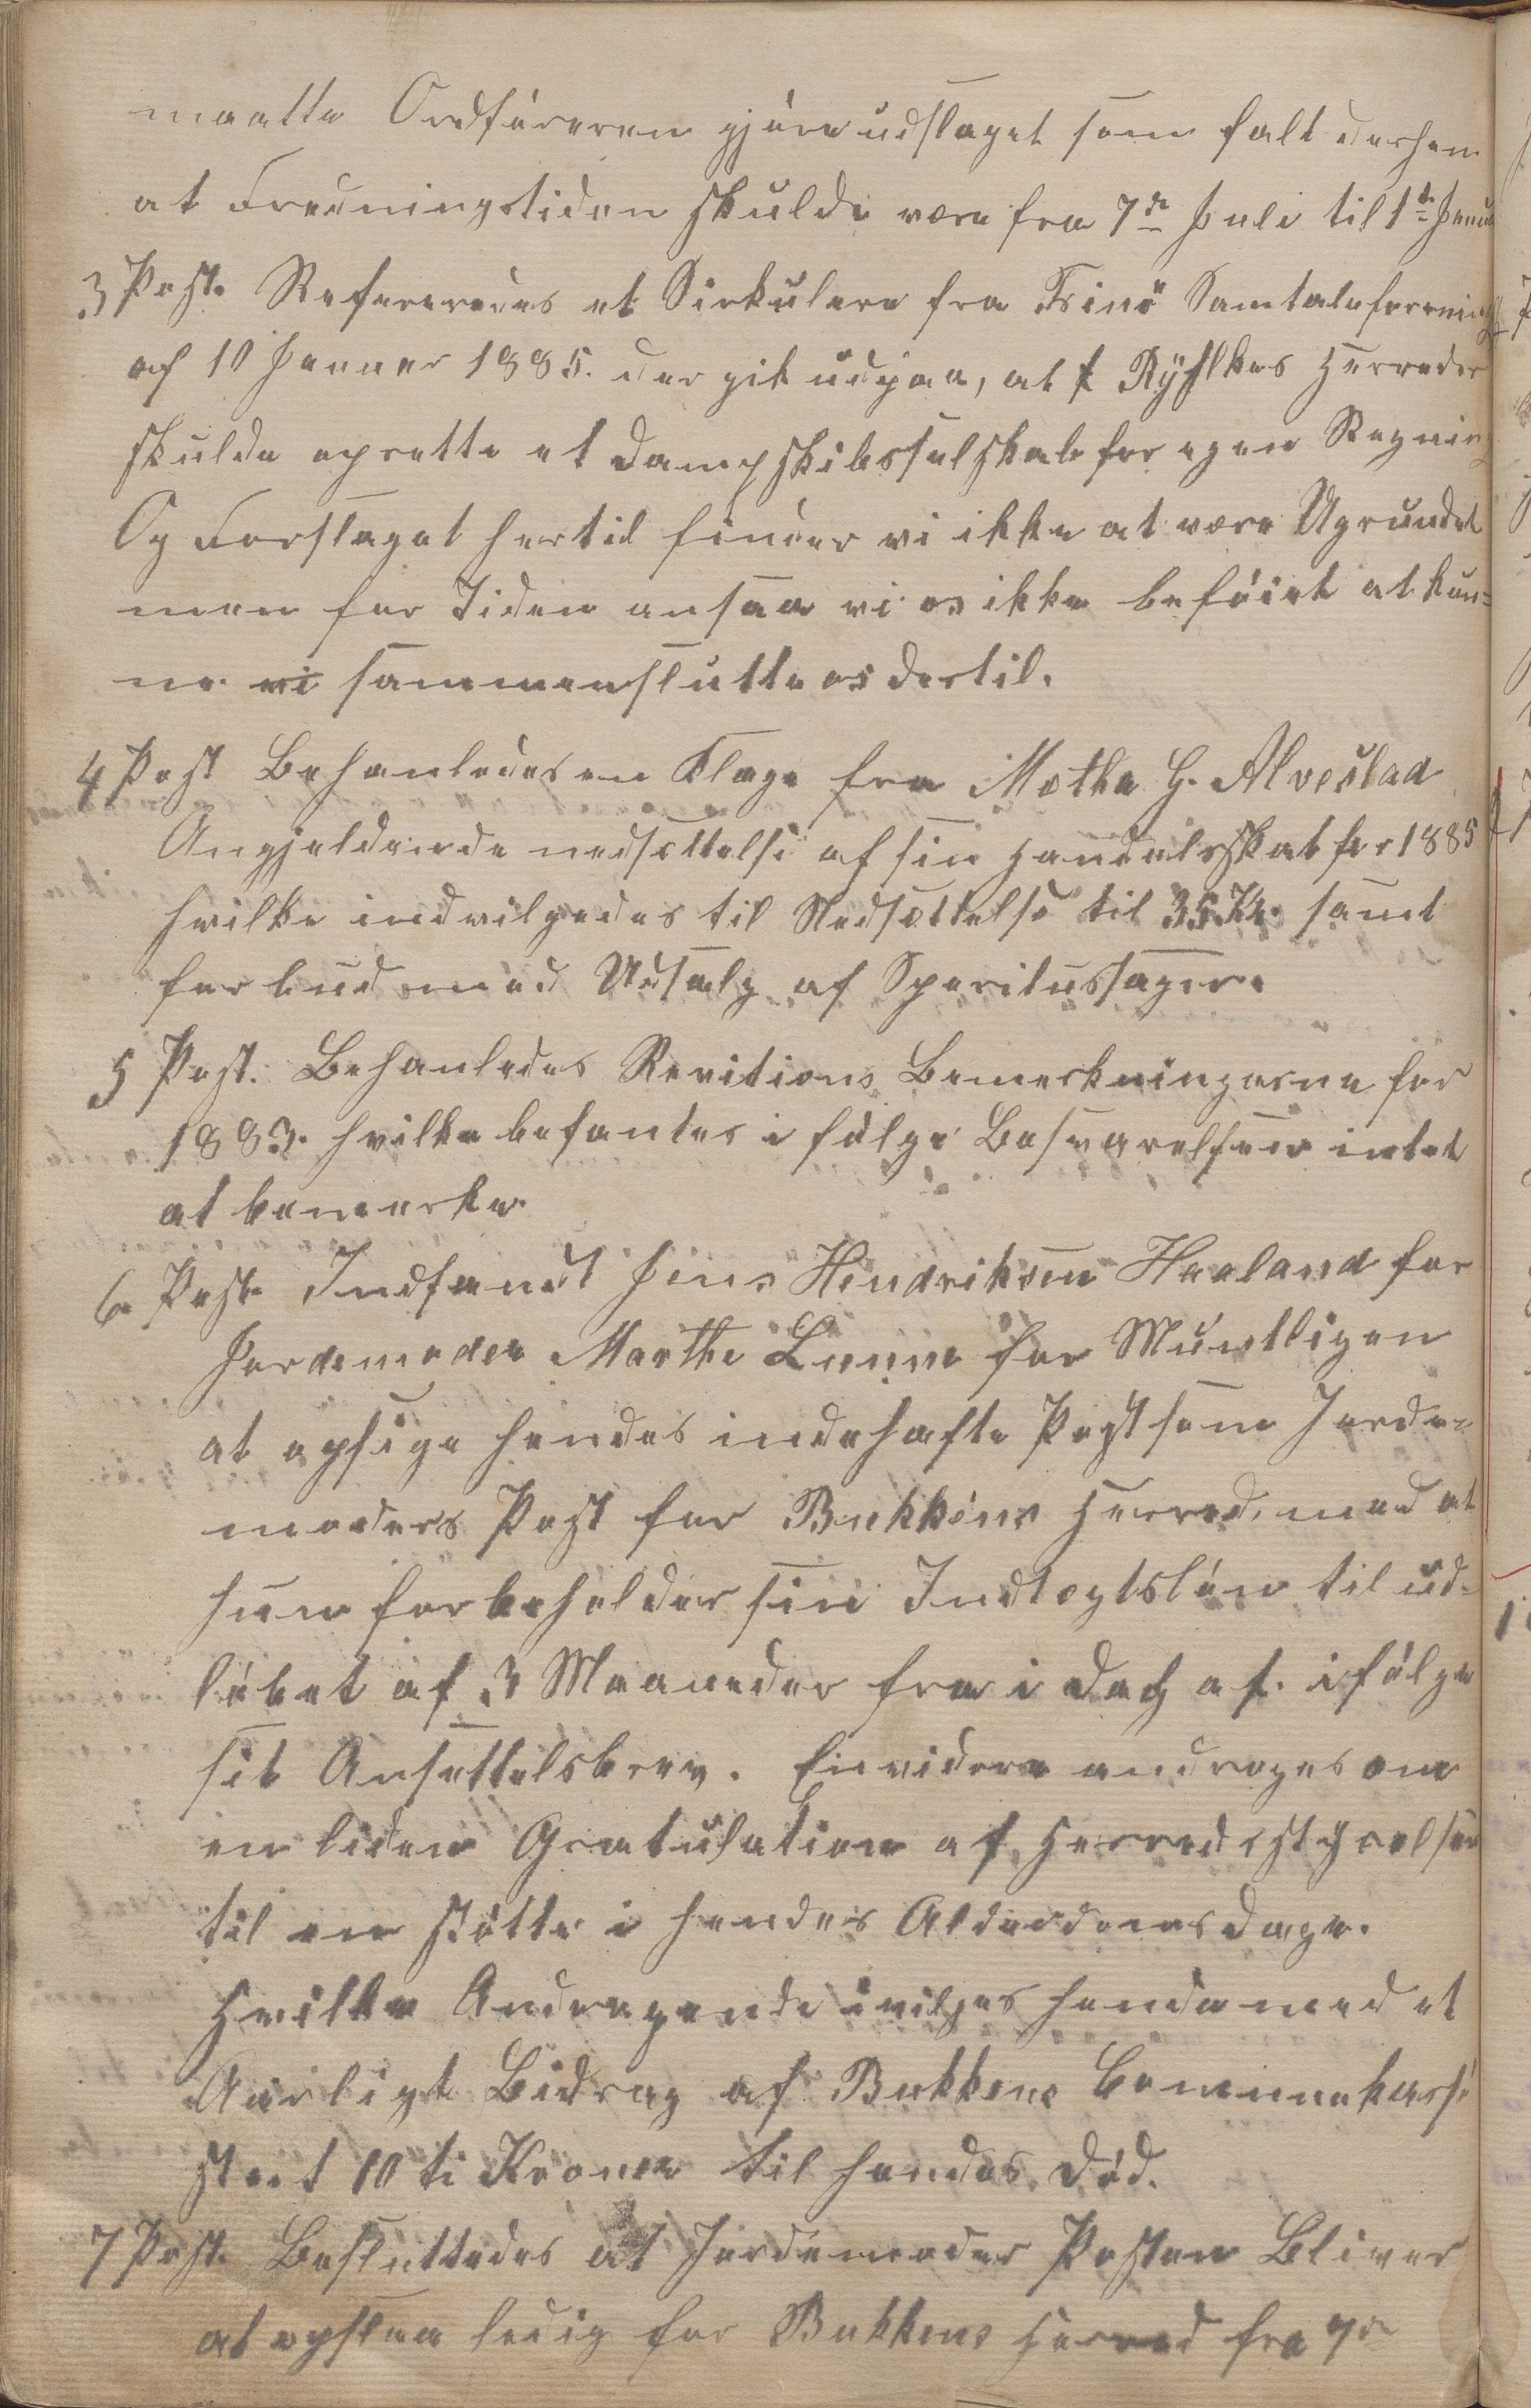 maatte Ordføreren gjøre udslaget som falt derhen
at Fredningstiden skulde være fra 7de Juli til 1ste Januar
3 Post. Refereredes et Sirkulere fra Finø Samtaleforening
af 10 Januar 1885. der gik udpaa, at f Ryfylkes Herreder
skulde oprette et Dampskibsselskab for egen Regning
Og Forslaget hertil finder vi ikke at være Ugrundet
men for Tiden ansaa vi os ikke beføiet at kun=
ne vi sammenslutte os dertil.
4 Post Behanledes en Klage fra Mæthe G. Alvestad
Angjeldende nedsættelse af sin Handelsskat for 1885
hvilke indvilgedes til Nedsættelse til 35 Kr. samt
forbud med Udsalg af Speritussager.
5 Post. Behanledes Revitions Bemerkningerne for
1883. hvilke befantes i følge Besvarelsen intet
at bemerke.
6 Post. Indfandt Jens Hendriksen Haaland for
Jordemoder Marthe Lunne for Muntligen
at opsige hendes indehafte Post som Jorde=
moders Post for Bukkens Herred, med at
hun forbeholder sin Indtegtsløn til ud=
løbet af 3 Maaneder fra i Dag af. ifølge
sit Ansettelsbrev. Envidere androges om
en liden Gratulation af Herredsstyrelsen
til en støtte i hendes Alderdomsdage.
Hvilke Andragende ivilges hende med et
Aarligt Bidrag af Bukkens Komunekasse
stort 10 ti Kroner til hendes Død.
7 Post. Besluttedes at Jordemoder Posten Bliver
at opslaa ledig for Bukkens Herred fra 7de